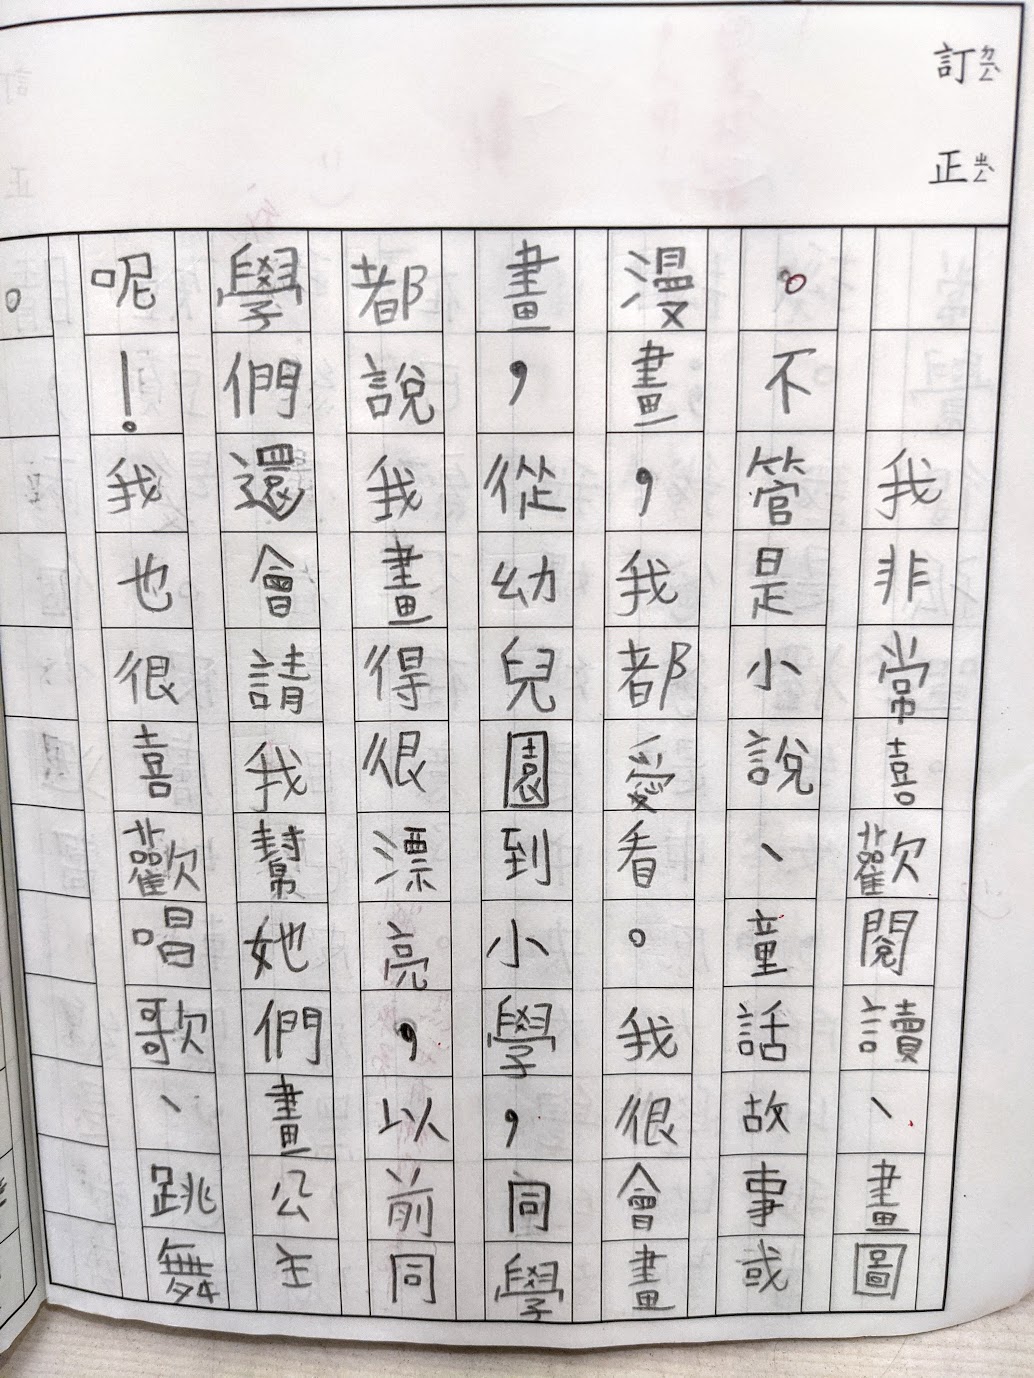 訂ㄉㄧㄥˋ正ㄓㄥˋ
我非常喜歡閱讀、畫圖
。不管是小說、童話故事或
漫畫，我都愛看。我很會畫
畫，從幼兒園到小學，同學
都說我畫得很漂亮，以前同
學們還會請我幫她們畫公主
呢！我也很喜歡唱歌、跳舞
。